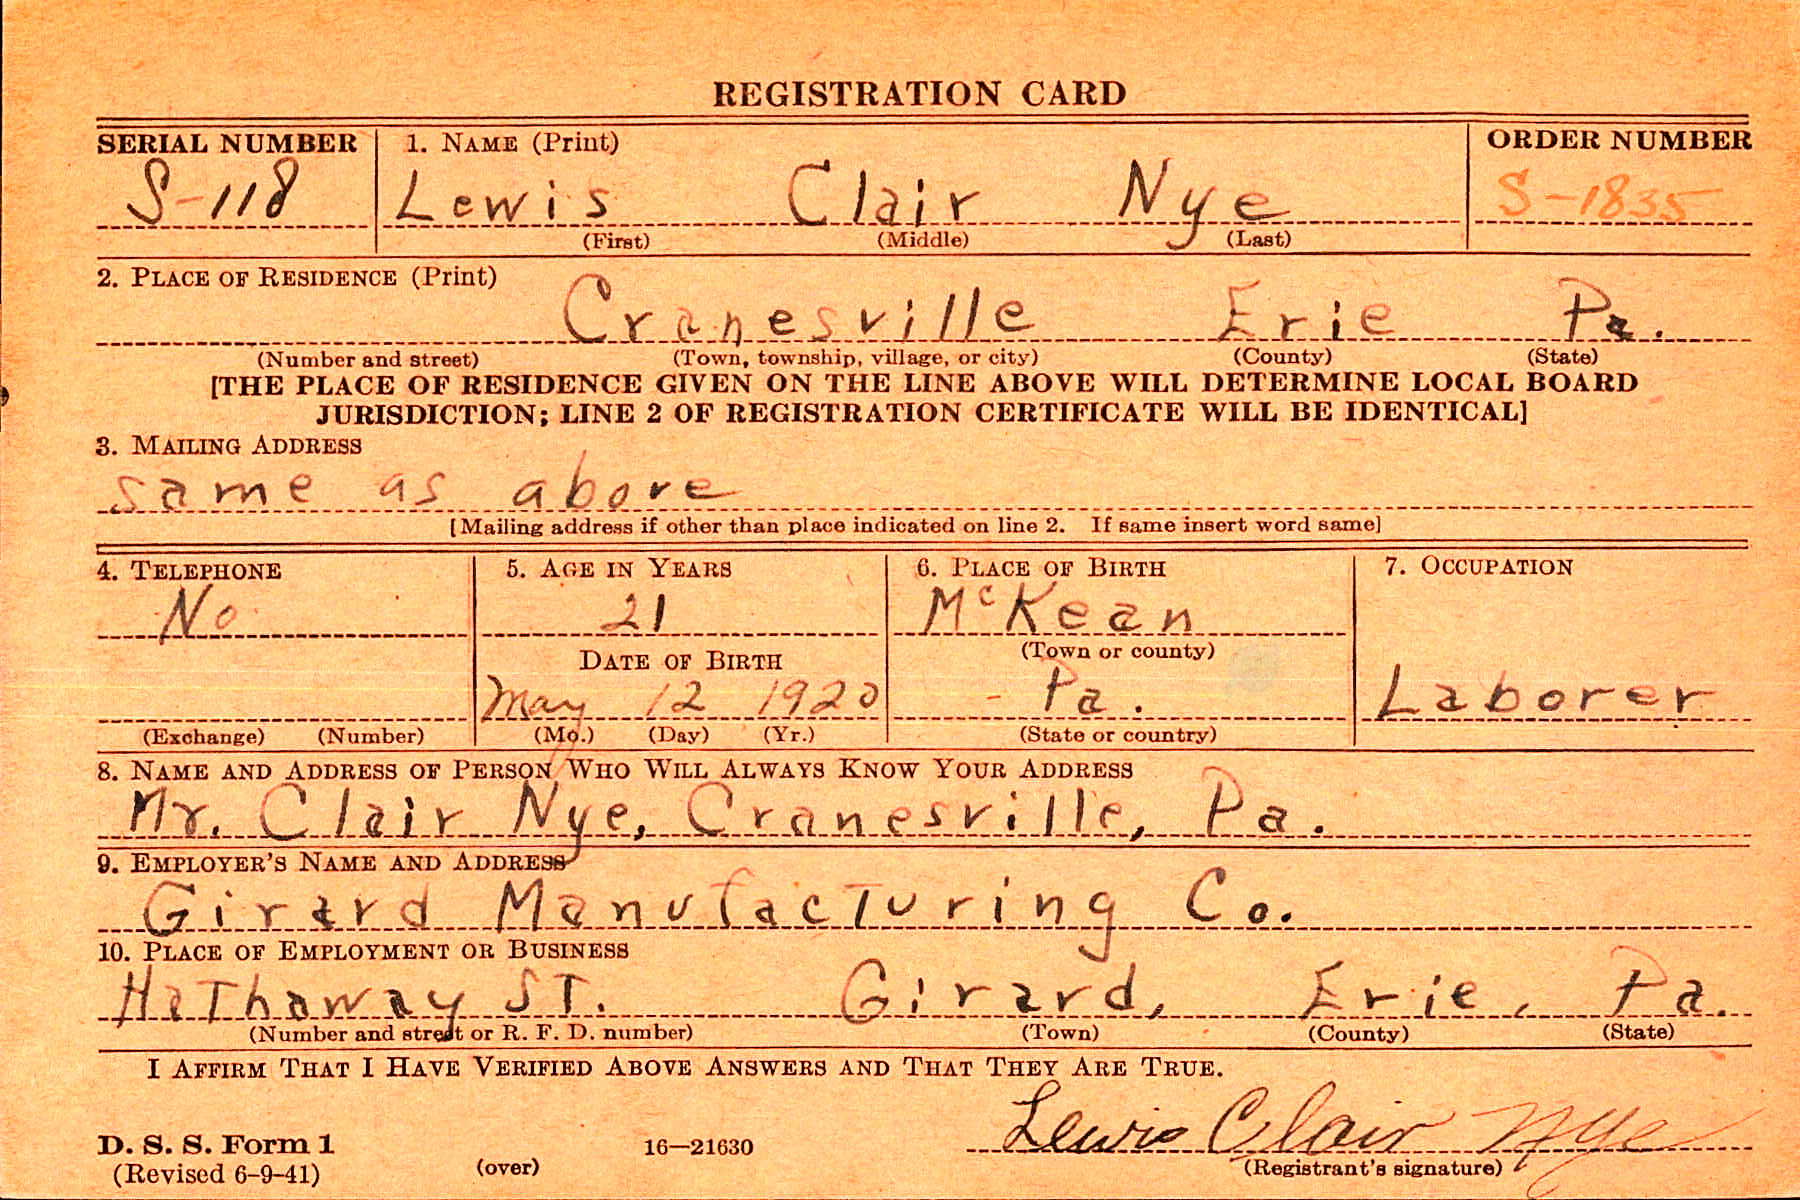 REGISTRATION CARD
SERIAL NUMBER 1. NAME (Print) ORDER NUMBER
S-118 Lewis Clair Nye S-1835
(First) (Middle) (Last)
2. PLACE OF RESIDENCE (Print)
Cranesville Erie Pa.
(Number and street) (Town, township, village, or city) (County) (State)
[THE PLACE OF RESIDENCE GIVEN ON THE LINE ABOVE WILL DETERMINE LOCAL BOARD
JURISDICTION; LINE 2 OF REGISTRATION CERTIFICATE WILL BE IDENTICAL]
3. MAILING ADDRESS
same as above
[Mailing address if other than place indicated on line 2. If same insert word same]
4. TELEPHONE 5. AGE IN YEARS 6. PLACE OF BIRTH 7. OCCUPATION
No 21 McKean
(Town or county)
DATE OF BIRTH
May 12 1920 Pa. Laborer
(Exchange) (Number) (Mo.) (Day) (Yr.) (State or country)
8. NAME AND ADDRESS OF PERSON WHO WILL ALWAYS KNOW YOUR ADDRESS
Mr. Clair Nye, Cranesville, Pa.
9. EMPLOYER'S NAME AND ADDRESS
Girard Manufacturing Co.
10. PLACE OF EMPLOYMENT OR BUSINESS
Hathaway St. Girard, Erie, Pa.
(Number and street or R. F. D. number) (Town) (County) (State)
I AFFIRM THAT I HAVE VERIFIED ABOVE ANSWERS AND THAT THEY ARE TRUE.
Lewis Clair Nye
D. S. S. Form 1 16—21630
(Revised 6-9-41) (over) (Registrant's signature)